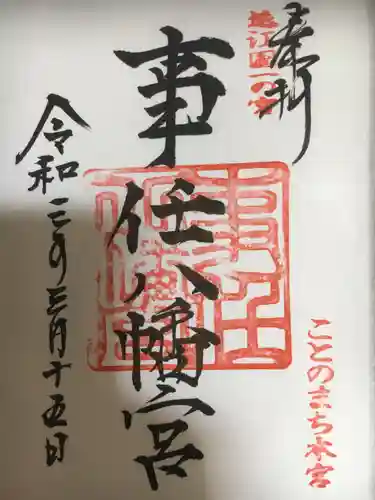 奉拝
遠江国一の宮
事任八幡宮
ことのまち本宮
令和三年三月十五日